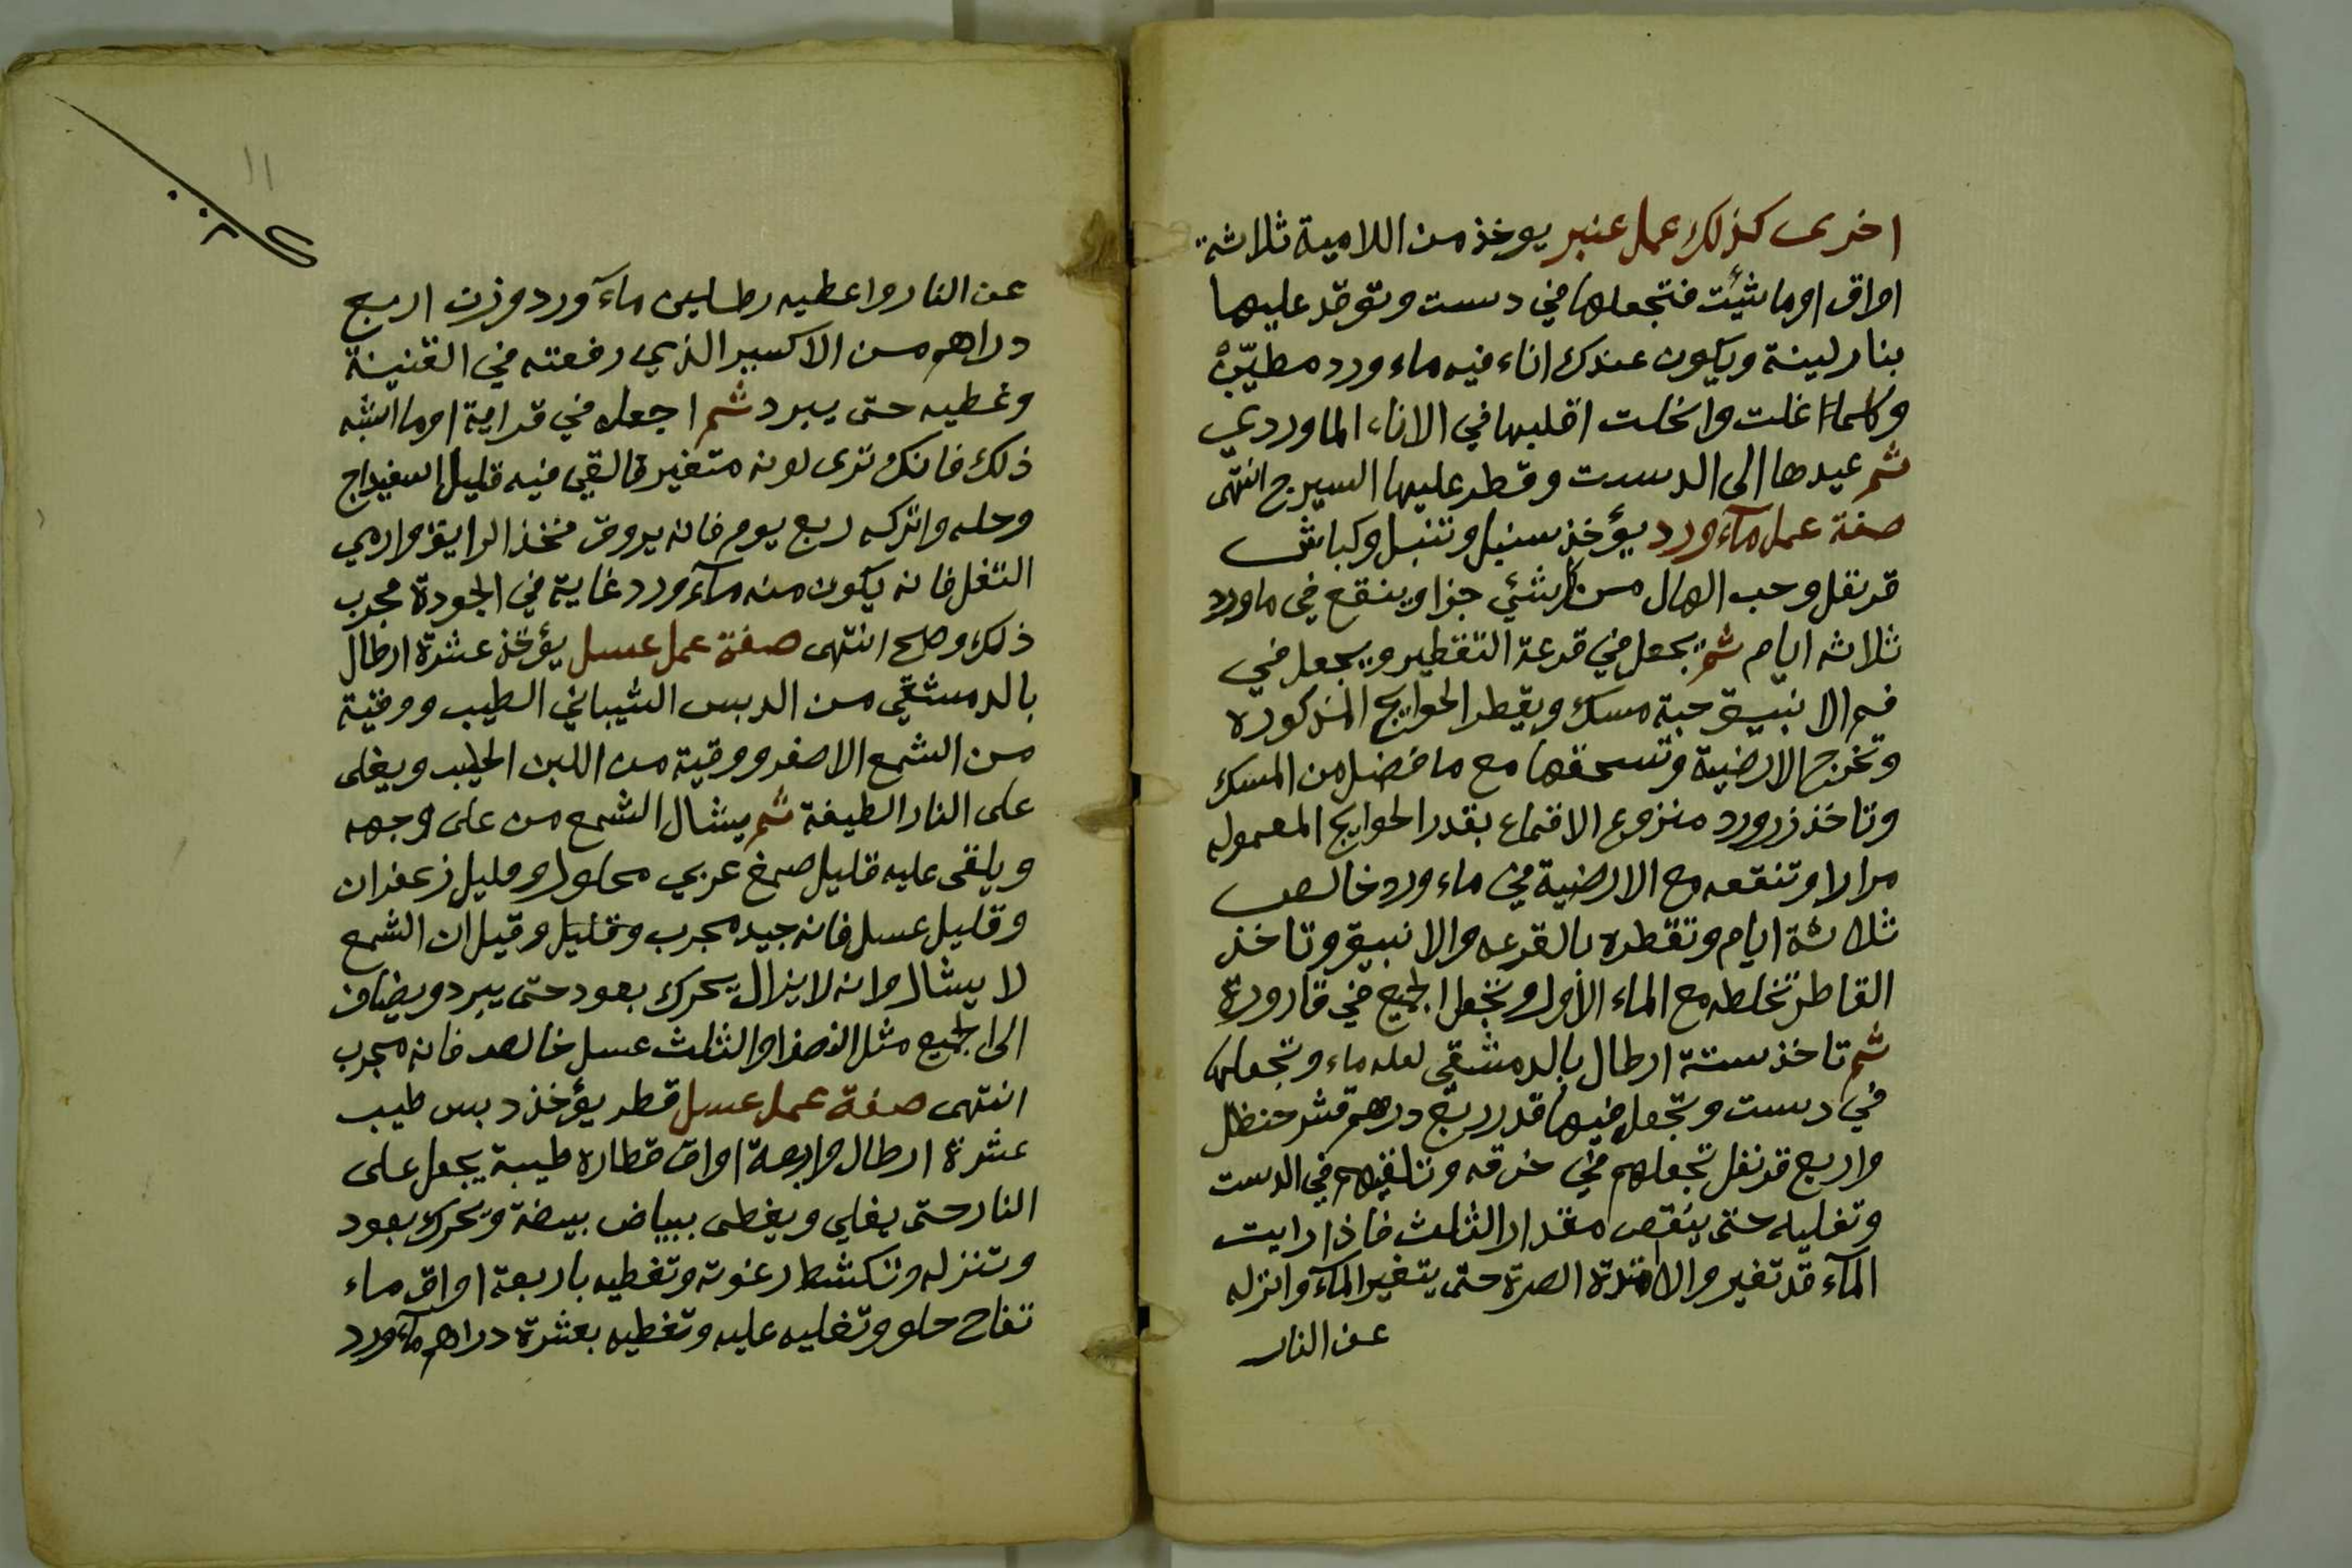 اخرى كذلك عمل عنبر يوخذ من اللامية ثلاثة
اواق اوما شئت فتجعلها في دست وتوقد عليها
بنار لينة ويكون عندك اناء فيه ماء ورد مطيّن
وكلما اغلت وانحلت اقلبها في الاناء الماوردي
ثم عيدها الى الدست وقطر عليها السيرج انتهى
صفة عمل مآء ورد يؤخذ سنبل وتنبل وكباش
قرنفل وحب الهال من كل شئي جزا وينقع في ماورد
ثلاثه ايام ثم يجعل في قرعة التقطير ويجعل في
فم الانبيق حبة مسك ويقطر الحوايج المذكوره
وتخرج الارضية وتسحقها مع ما فضل من المسك
وتاخذ زرورد منزوع الاقماع بقدر الحوايج المعموله
مرارا وتنقعه مع الارضية في ماء ورد خالص
ثلاثة ايام وتقطره بالقرعه والانبيق وتاخذ
القاطر تخلطه مع الماء الأول وتجعل الجميع في قارورة
ثم تاخذ ستة ارطال بالدمشقي لعله ماء وتجعلها
في دست وتجعل فيها قدر ربع درهم قشر حنظل
واربع قرنفل تجعلهم في خرقه وتلقيهم في الدست
وتغليه حتى ينقص مقدار الثلث فاذا رايت
المآء قد تغير والا الصرة حتى يتغير المآء وانزله
عن النار
١١
عن النار واعطيه رطلين مآء ورد وزن اربع
دراهم من الاكسير الذي رفعته في القنينة
وغطيه حتى يبرد ثم اجعله في قرابة اوما اشبه
ذلك فانك ترى لونه متغير فالقي فيه قليل اسفيداج
وحله واتركه ربع يوم فانه يروق فخذ الرايق وارمي
التفل فانه يكون منه مآء ورد غاية في الجودة مجرب
ذلك وصح انتهى صفة عمل عسل يؤخذ عشرة ارطال
بالدمشقي من الدبس الشيباني الطيب ووقية
من الشمع الاصفر ووقية من اللبن الحليب ويغلى
على النار الطيفة ثم يشال الشمع من على وجهه
ويلقى عليه قليل صمغ عربي محلول وقليل زعفران
وقليل عسل فانه جيد مجرب وقليل وقيل ان الشمع
لا يشال وانه لا يزال يحرك بعود حتى يبرد ويضاف
الى الجميع مثل النصف او الثلث عسل خالص فانه مجرب
انتهى صفة عمل عسل قطر يؤخذ دبس طيب
عشرة ارطال واربعة اواق قطاره طيبة يجعل على
النار حتى يغلي ويغطى ببياض بيضة ويحرك بعود
وتنزله وتكشط رغوته وتغطيه باربعة اواق ماء
تفاح حلو وتغليه عليه وتغطيه بعشرة دراهم مآء ورد